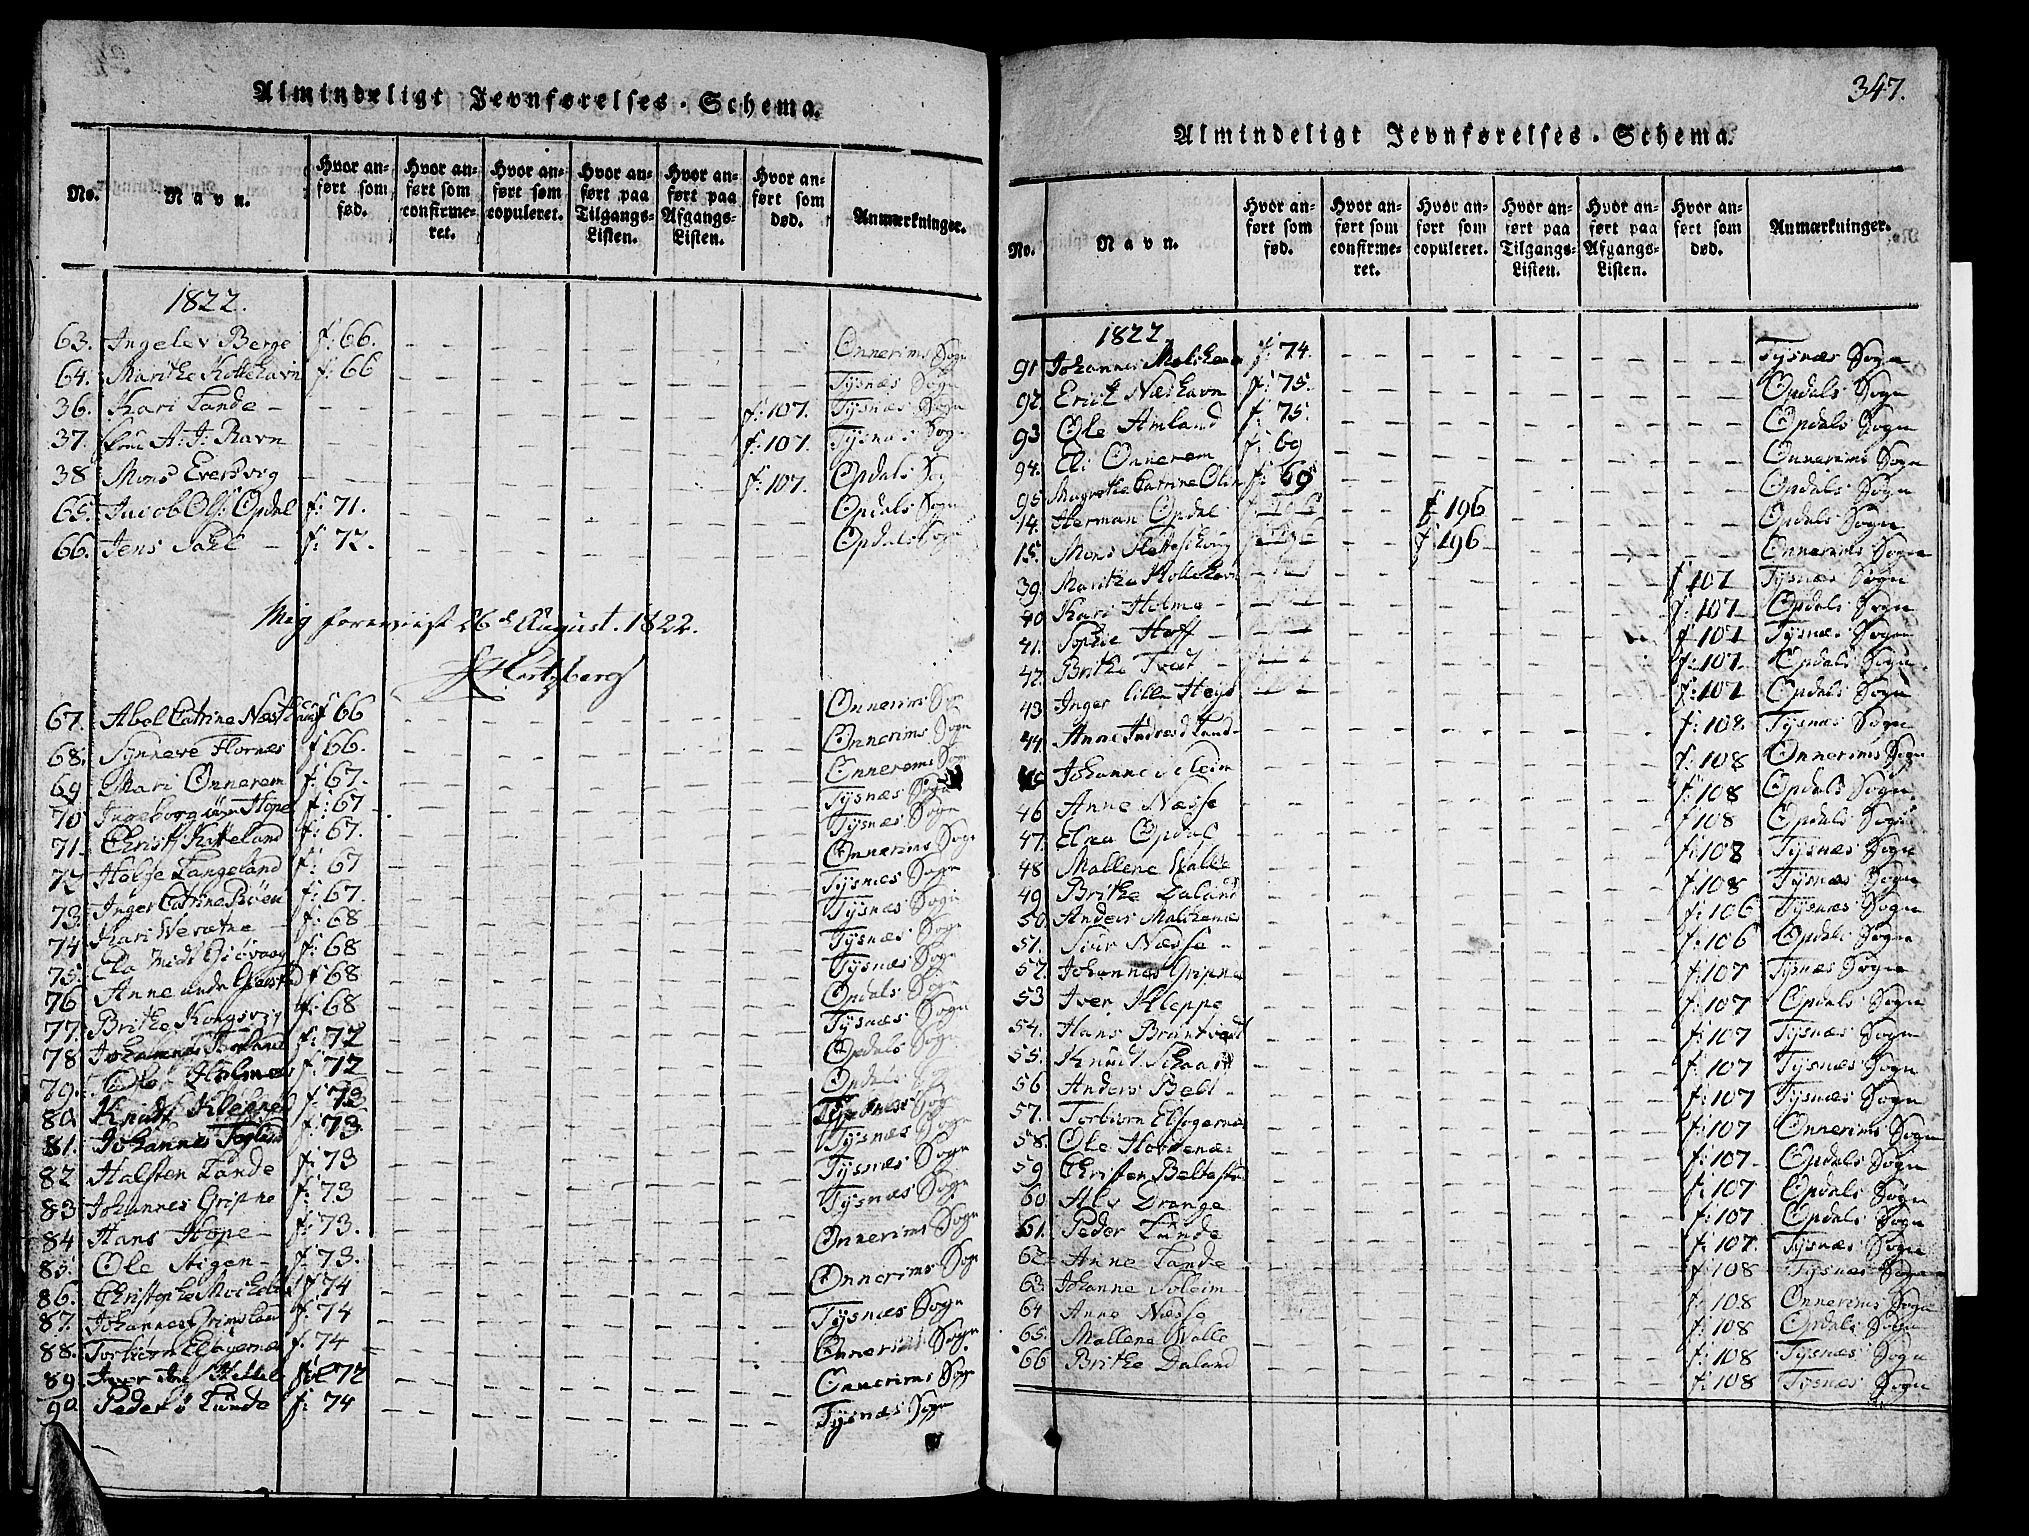 Almindeligt Jevnførelses-Schema.
No. Navn. Hvor anført som fød. Hvor anført som confirmeret. Hvor anført som copuleret. Hvor anført paa Tilgangs-Listen. Hvor anført paa Afgangs-Listen. Hvor anført som død. Anmærkninger.
1822.
63. Ingelev Berge f: 66. Onnerims Sogn
64. Marithe Kollehavn f: 66 Tysnæs Sogn
36. Kari Lande f: 107. Tysnæs Sogn
37. Frue A. J. Ravn f: 107. Tysnæs Sogn
38 Mons Eversvig f: 107. Opdals Sog
65. Jacob Ols: Opdal f: 71. Opdals Sogn
66. Jens f: 72. Opdals Sogn
Mig foreviist 26d August. 1822.
Hertzberg
67. Abel Catrine f 66 Onnerims Sogn
68. Synneve Flornæs f 66. Onnerims Sogn
69 Mari Onnerem f: 67. Onnerems Sogn
70 Ingeborg Hope f: 67 Tysnæs Sogn
71. Christi Kitteland f: 67. Tysnæs Sogn
72 Helje Langeland f: 67 Onnerims Sogn
73. Inger Catrine Röen f: 67. Tysnæs Sogn
74 Kari f: 68 Tysnæs Sogn
75. Ela f: 68 Tysnæs Sogn
76 Anne f 68 Tysnæs Sogn
77. Brithe Kongsvig f: 68 Opdals Sogn
78 Johannes f: 72 Tysnæs Sogn
79. Ole Holmæs f: 72 Opdals Sogn
80 Knudt Kleppe f: 73 Opdals
81. Johannes Tegland f: 73.
82 Halsten Lande f: 73 Tysnæs Sogn
83 Johannes Gripne f: 73 Tysnæs Sogn
84 Hans Hope f: 73. Tysnæs Sogn
85. Ole Aigen f: 73. Onnerims Sogn
86. Christophe f 74 Onnerims Sogn
87. Johannes Grimsland f: 74 Tysnæs Sogn
88. Torbiörn Elsagernæ f: 74 Onnerims Sogn
89. Iver f: 72 Onnerims Sogn
90 Peder ö Lunde f: 74 Tysnæs Sogn
347.
Almindeligt Jevnførelses-Schema.
No. Navn. Hvor anført som fød. Hvor anført som confirmeret. Hvor anført som copuleret. Hvor anført paa Tilgangs-Listen. Hvor anført paa Afgangs-Listen. Hvor anført som død. Anmærkninger.
1822.
91 Johannes Malkenes f: 74. Tysnæs Sogn
92. Erick Næshavn f: 75. Opdals Sogn
93 Ole Amland f: 75. Opdals Sogn
94. Eli Onnerem f: 69 Onnerims Sogn
95 Magrethe Catrine f: 69 Opdals Sogn
14. Herman Opdal f 196 Opdals Sogn
15. Mons f 196 Onnerems Sogn
39. Marithe Kollehavn f 107 Tysnæs Sogn
40 Kari Holme f: 107 Opdals Sogn
41. Sophie Hoff f: 107 Tysnæs Sogn
42. Brithe Tvedt f: 107. Opdals Sogn
43 Inger lille f: 107 Opdals Sogn
44. Anne f: 108. Tysnæs Sogn
Johanne Soleim f: 108 Onnerims Sogn
46 Anne Næsse f: 108 Opdals Sogn
47. Elna Opdal f: 108 Opdals Sogn
48 Mallene Walle f: 108 Tysnæs Sogn
49 Brithe Daland f: 108 Tysnæs Sogn
50. Anders Malkenæs f: 106 Tysnæs Sogn
51. Siur Næsse f: 106 Opdals Sogn
52. Johannes Gripne f: 107 Tysnæs Sogn
53 Iver Kleppe f: 107 Opdals Sogn
54. Hans f: 107 Tysnæs Sogn
55. Knud Skaar f: 107 Tysnæs Sogn
56 Anders Belt f: 107 Tysnæs Sogn
57. Torbiörn Elsagernæs f: 107 Onnerims Sogn
58. Ole f: 107 Opdals Sogn
59 Christen f: 107 Opdals Sogn
60 Abs Drange f: 107 Opdals Sogn
61. Peder Lunde f: 107. Tysnæs Sogn
62. Anne Lande f: 108 Tysnæs Sogn
63. Johanne Soleim f: 108 Onnerims Sogn
64 Anne Næsse f: 108 Opdals Sogn
65. Mallene Walle f: 108 Tysnæs Sogn
66 Brithe Daland f: 108 Tysnæs Sogn